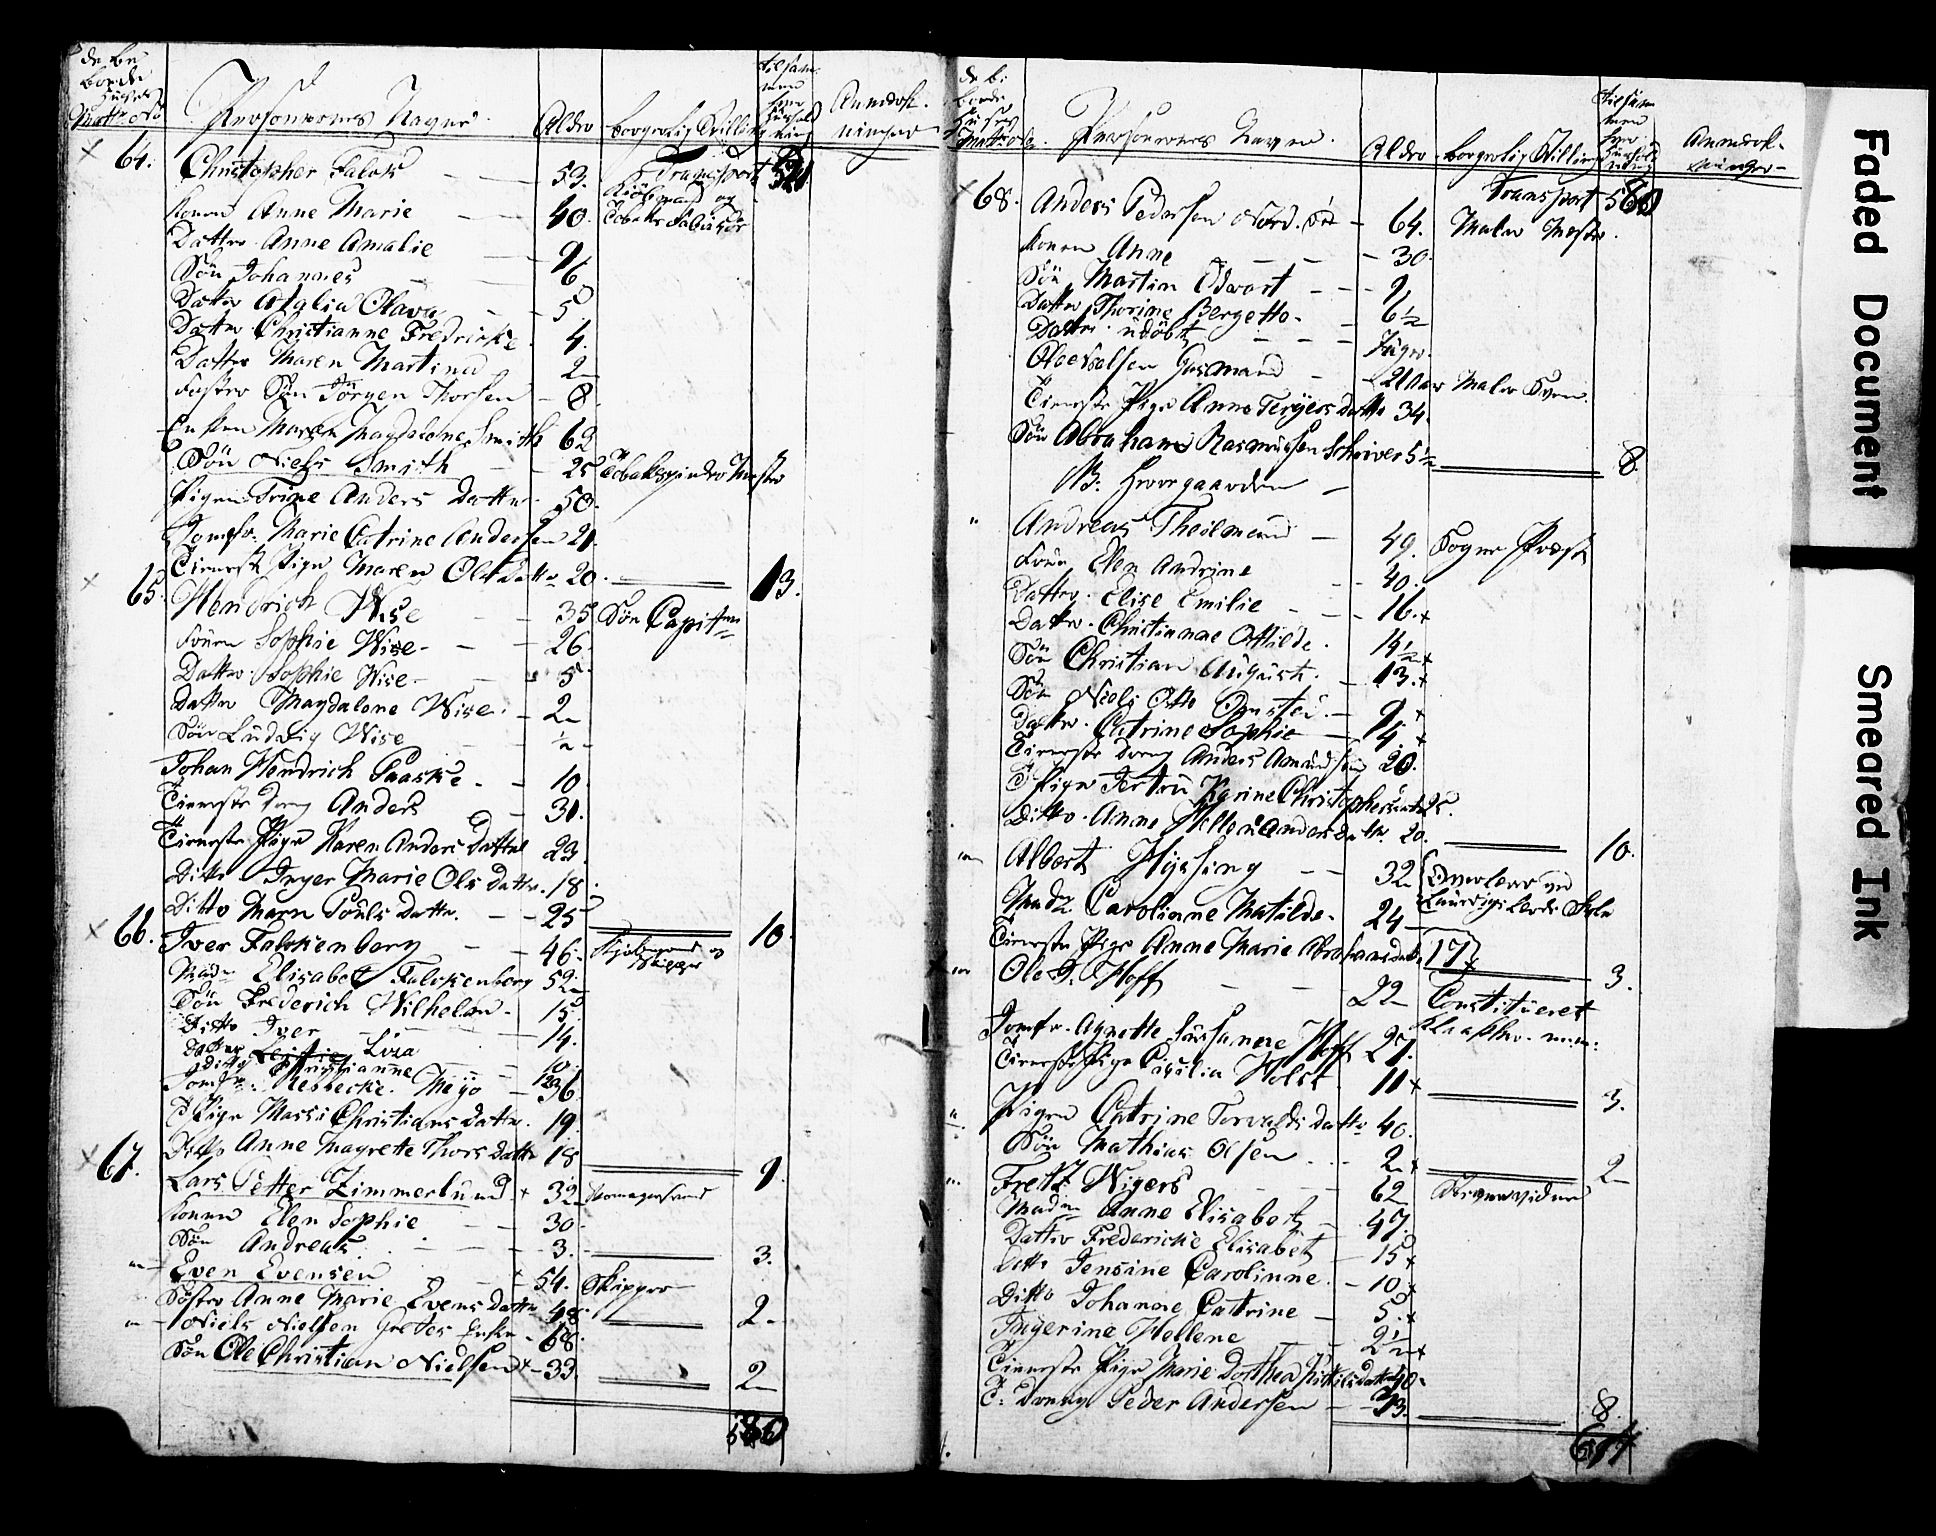 de be
boede
Huses
Matr: No
Personernes Nagne.
Alder
borgerlig Stilling
tilsam
men
hver
Hushold
ning
Anmærk-
ninger
Transport 521
64. Christopher Falck 53. Kiöbmand og
Konen Anne Marie 40. Tobaks Fabrikør
Datter Anne Amalie 9
Søn Johannes 6
Datter Atalia Olava 5
Datter Christianne Fredricke 4.
Datter Maren Martina 2
Foster Søn Jörgen Thorsen 8.
Enken Maren Magdalene Smith 62
Søn Niels Smith 25 Tobakspinder Mester
Pigen Trine Anders Datter 50.
Jomfr. Marie Catrine Andersen 21.
Tieneste Pige Maren Ols Datter 20. 13.
65. Hendrich Wise 35 Søe Capitten
Fruen Sophie Wise 26.
Datter Sophie Wise 5
Datter Magdalene Wise 2
Søn Ludvig Wise ½
Johan Hendrich Paaske 10
Tieneste Dreng Anders 31.
Tieneste Pige Karen Anders Datter 23
Ditto Inger Marie Ols Datter 18.
Ditto Maren Pouls Datter 25 10.
66. Iver Falckenberg 46. Kjøbmand og
Skipper
Madm Elisabet Falckenberg 52
Søn Frederich Wilhelm 15
Ditto Iver 14.
Datter Liza 10
Ditto Christianne 12
Jomfr: Rebecke Meyo 36
T Pige Massi Christians Datter 19.
Ditto Anne Magrette Thors Datter 18 9.
67. Lars Petter Zimmerlund 32 Skomagersvend
Konen Elen Sophie 30.
Søn Andreas 3. 3.
Even Evensen 54. Skipper
Søster Anne Marie Evens Datter 48 2
Niels Nielsen Enke 68.
Søn Ole Christian Nielsen 33. 2
560
de be
boede
Huses
Matr: No
Personernes Navne.
Alder
borgerlig Stilling
tilsam
men
hver
Hushold
ning
Anmærk-
ninger
Transport 560
68. Anders Pedersen Nord 64. Maler Mester.
Konen Anne 30.
Søn Martin Edvart 9
Datter Thorine Bergette 6½
Datter udøbt
Ole Olsen Gusmand 21 Aar Maler Svend
Tieneste Pige Anne Terjers Datter 34.
Søn Abraham Rasmussen Schriver 5½ 8.
Andreas Theilmand 49. Sogne Præst
Fruen Elen Andrine 40.
Datter Elise Emilie 16.
Datter Christianne Ottilde 14½
Søn Christian August 13.
Søn Niels Otto 9
Datter Catrine Sophie 4.
Tieneste Dreng Anders Amundsen 20.
T Pige Jertru Karine Christophersdatter 25.
Ditto Anne Hellene Andersdatter 20. 10.
Albert Hysing 32 Overlærer ved
Laurdigs lærde Skole
Mad. Carolianne Matilde 24
Tieneste Pige Anne Marie Abrahamsdatter 17 3.
Ole D. Hoff 22 Constitueret
Jomfr. Agnette Susanne Hoff 27.
Tieneste Pige Cicilia Holst 11 3.
Pigen Catrine Torvalds datter 40.
Søn Mathias Olsen 2 2
Fretz Wigers 62
Madm Anne Elisabet 47.
Datter Fredericke Elisabet 15
Ditto Jensine Carolinne 10
Ditto Johanne Cattrine 5
Ingerine Hellene 2½
Tieneste Pige Marie Dorthea Kittils datter
T: Dreng Peder Andersen 13. 8.
Faded Document
Smeared Ink